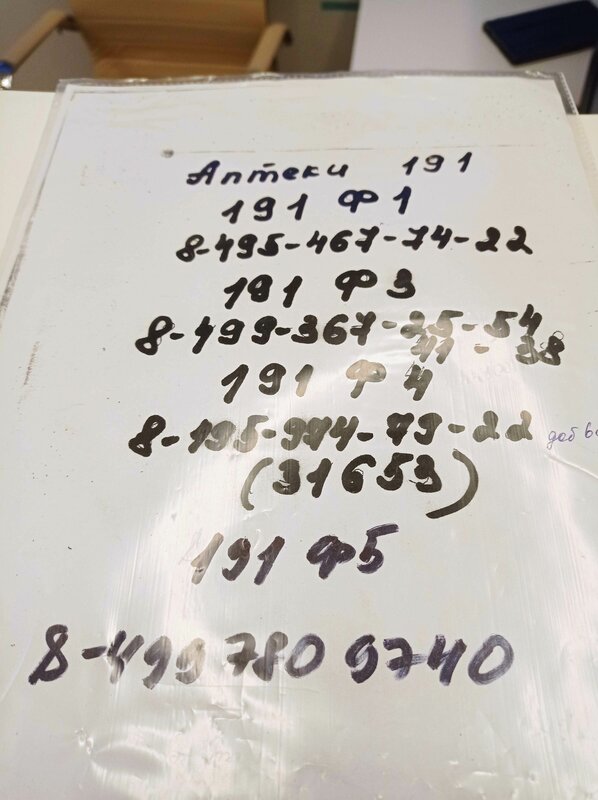 Аптеки 191
191 Ф1
8-495-467-74-22
191 Ф3
8-499-367-25-54
41-38
191 Ф4
8-495-974-79-22 доб
(31653)
191 Ф5
8-499 780 9740